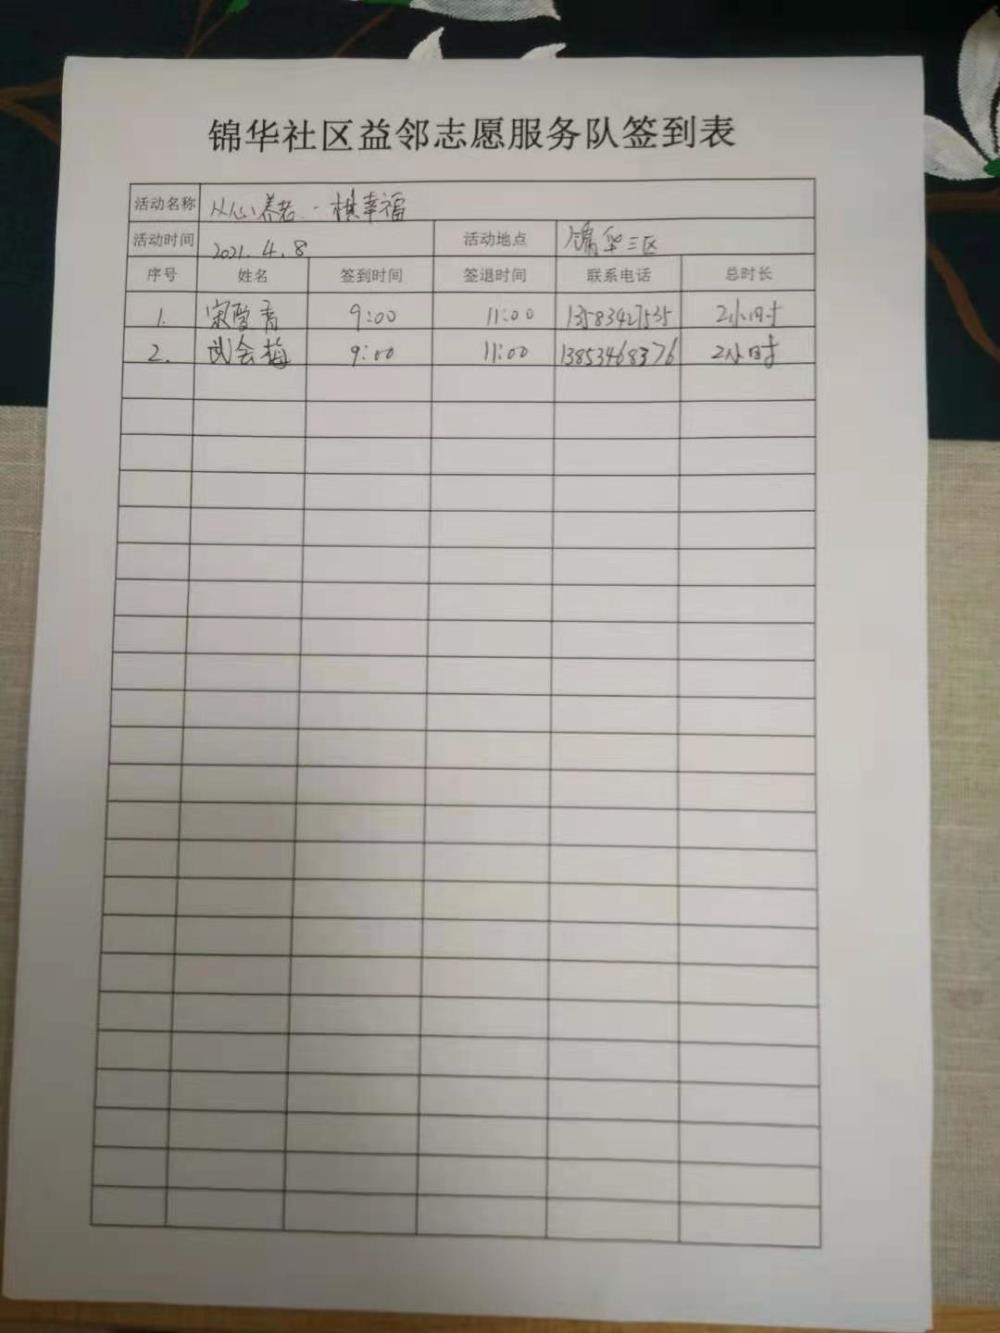 锦华社区益邻志愿服务队签到表
活动名称 从心养老 一棋幸福
活动时间 2021.4.8 活动地点 锦华三区
序号 姓名 签到时间 签退时间 联系电话 总时长
1. 9:00 11:00 13583427535 2小时
2. 武会梅 9:00 11:00 13853468376 2小时